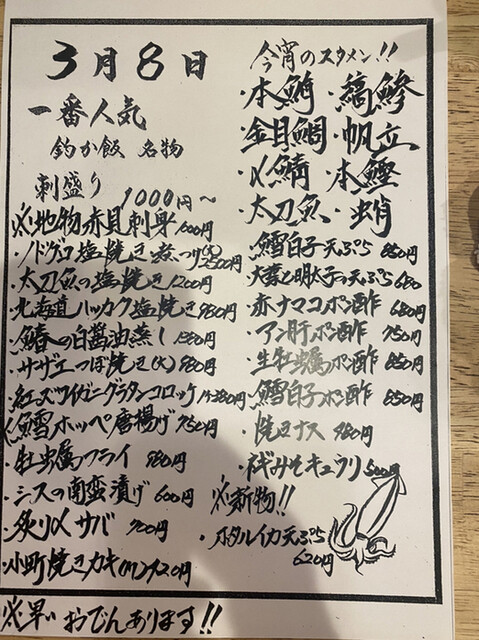 3月8日
一番人気
釣か飯 名物
刺盛り 1000円～
※地物赤貝刺身 1000円
・ノドグロ塩焼き煮つけ(大)2500円
・太刀魚の塩焼き 1200円
・北海道ハッカク塩焼き 980円
・鰆の白醤油蒸し
・サザエつぼ焼き(大) 980円
・紅ズワイガニグラタンコロッケ
※鱈ホッペ唐揚げ 750円
・牡蛎フライ 980円
・シスの南蛮漬け 600円
・炙り〆サバ 700円
・小町焼きカキ 920円
※早い おでんあります!!
今宵のスタメン!!
・本鮪・縞鯵
・金目鯛・帆立
・〆鯖・本鰹
・太刀魚・蛸
・鱈白子天ぷら 850円
・大葉と明太子の天ぷら 680
・赤ナマコポン酢 680円
・アン肝ポン酢 750円
・生牡蛎ポン酢 850円
・鱈白子ポン酢 850円
・焼きナス 480円
・ネギみそキュウリ 500円
※新物!!
・ホタルイカ天ぷら
620円